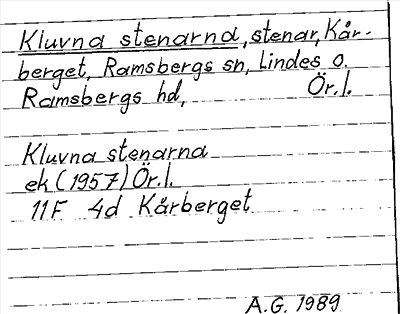 Kluvna stenarna, stenar, Kår-
berget, Ramsbergs sn, Lindes o.
Ramsbergs hd, Ör.l.
Kluvna stenarna
ek (1957) Ör.l.
11F 4d Kårberget
A.G. 1989